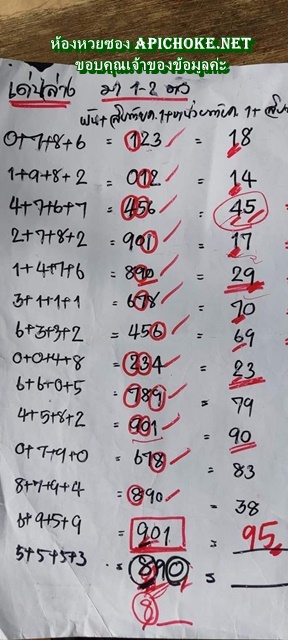 ห้องหวยซอง APICHOKE.NET
ขอบคุณเจ้าของข้อมูลค่ะ
เด่นล่าง มา 1-2 ตัว
0+7+8+6 = 123 = 18
1+9+8+2 = 012 = 14
4+7+6+7 = 456 = 45
2+7+8+2 = 901 = 17
1+4+7+6 = 890 = 29
3+1+1+1 = 678 = 70
6+3+3+2 = 456 = 69
0+0+4+8 = 234 = 23
6+6+0+5 = 789 = 79
4+5+8+2 = 901 = 90
0+7+9+0 = 678 = 83
8+7+9+4 = 890 = 38
6+9+5+9 = 901 = 95
5+5+5+3 = 890 =
8